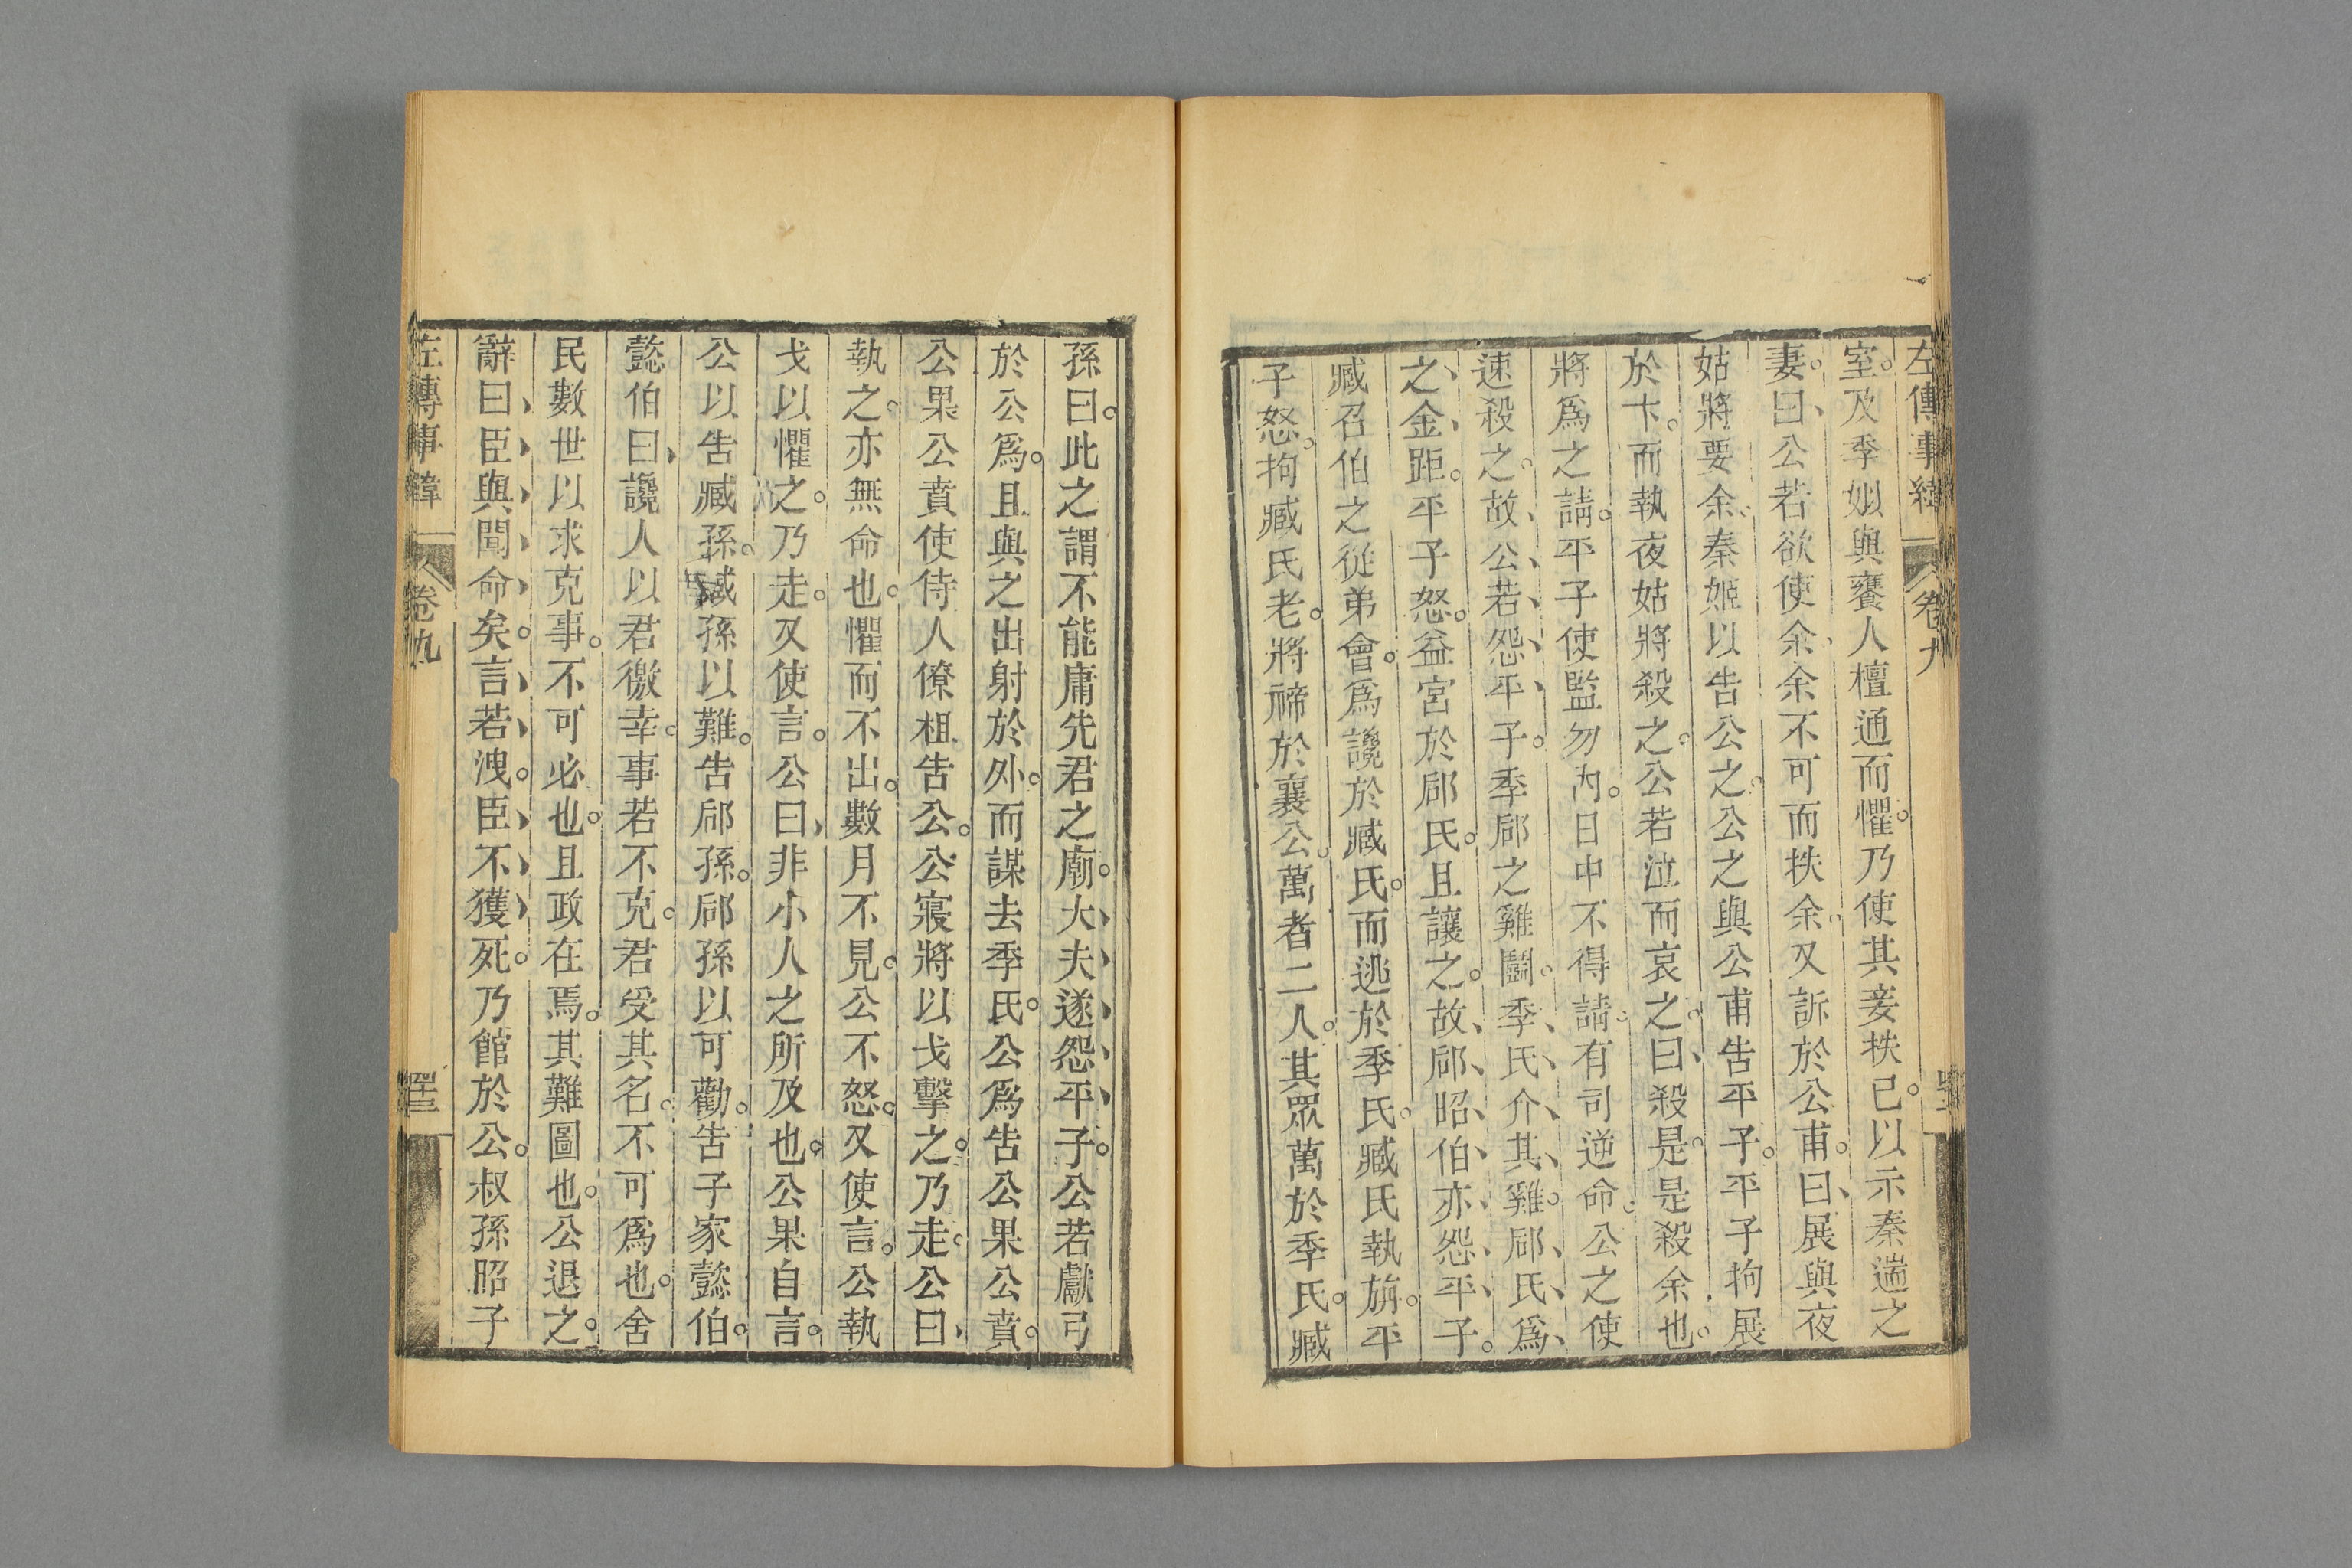 左傳事緯 卷九
室。及季姒與饔人檀通而懼。乃使其妾抶己。以示秦遄之
妻。曰、公若欲使余、余不可而抶余。又訴於公甫。曰、展與夜
姑將要余。秦姬以告公之。公之與公甫告平子。平子拘展
於卞。而執夜姑將殺之。公若泣而哀之。曰、殺是。是殺余也。
將爲之請。平子使監勿內。日中不得請。有司逆命。公之使
速殺之。故、公、若、怨、平、子。季郈之雞鬬。季、氏、介、其、雞。郈、氏、爲、
之、金、距。平子怒。益宮於郈氏。且讓之。故、郈、昭、伯、亦、怨、平、子。
臧召伯之從弟會。爲讒於臧氏。而逃於季氏。臧氏執旃。平
子怒。拘臧氏老。將禘於襄公。萬者二人。其眾萬於季氏。臧
孫曰。此之謂不能庸先君之廟。大、夫、遂、怨、平、子。公若獻弓
於公爲。且與之出射於外。而謀去季氏。公爲告公果公賁。
公果公賁使侍人僚柤告公。公寢將以戈擊之。乃走。公曰、
執之。亦無命也。懼而不出。數月不見。公不怒。又使言。公執
戈以懼之。乃走。又使言。公曰、非小人之所及也。公果自言。
公以告臧孫。臧孫以難。告郈孫。郈孫以可勸。告子家懿伯。
懿伯曰、讒人以君徼幸。事若不克。君受其名。不可爲也。舍
民數世以求克事。不可必也。且政在焉。其難圖也。公退之。
辭曰、臣、與、聞、命、矣。言、若、洩。臣、不、獲、死。乃館於公。叔孫昭子
左傳事緯 卷九